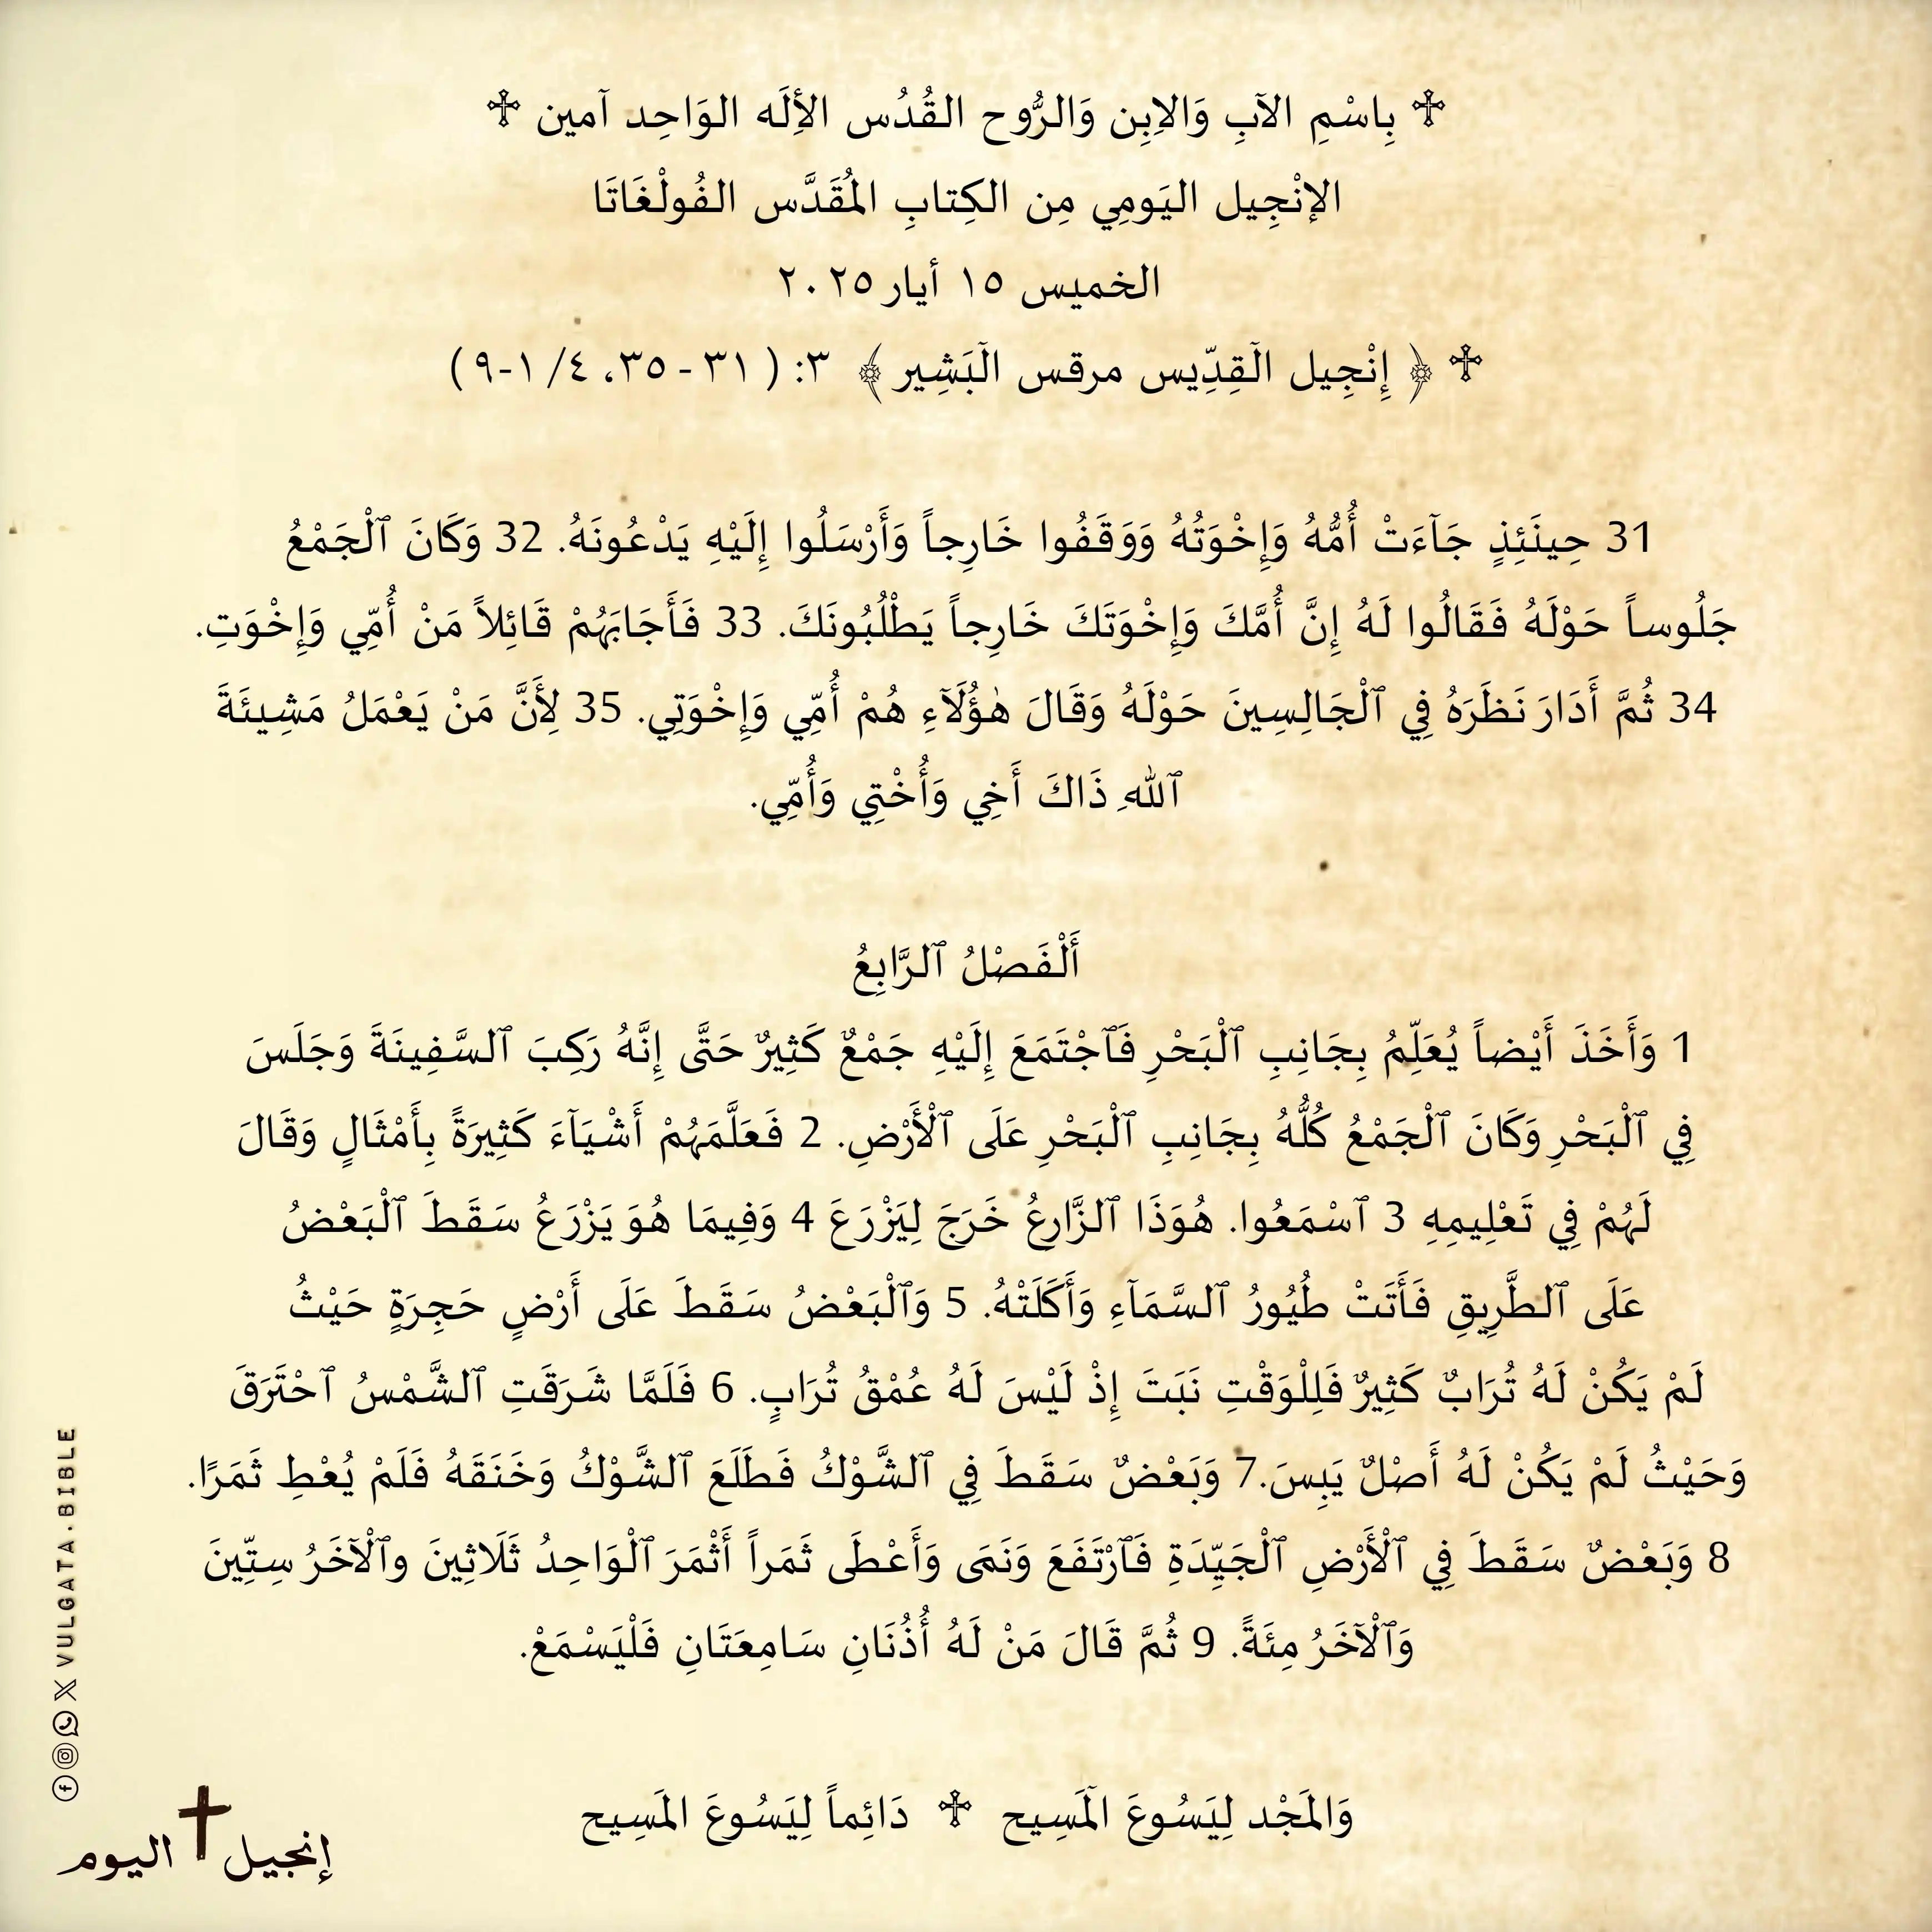 ✞ بِاسْمِ الآبِ وَالاِبِن وَالرُّوح القُدُس الأِلَه الوَاحِد آمين ✞
الإنْجِيل اليَومِي مِن الكِتابِ المُقَدَّس الفُولْغَاتَا
الخميس ١٥ أيار ٢٠٢٥
✞ ﴿ إِنْجِيل الَقِدِّيس مرقس الَبَشِير ﴾ ٣: ( ٣١ - ٣٥، ٤/ ١-٩ )
31 حِينَئِذٍ جَآءَتْ أُمُّهُ وَإِخْوَتُهُ وَوَقَفُوا خَارِجاً وَأَرْسَلُوا إِلَيْهِ يَدْعُونَهُ. 32 وَكَانَ ٱلْجَمْعُ
جَلُوساً حَوْلَهُ فَقَالُوا لَهُ إِنَّ أُمَّكَ وَإِخْوَتَكَ خَارِجاً يَطْلُبُونَكَ. 33 فَأَجَابَهُمْ قَائِلاً مَنْ أُمِّي وَإِخْوَتِ.
34 ثُمَّ أَدَارَ نَظَرَهُ فِي ٱلْجَالِسِينَ حَوْلَهُ وَقَالَ هٰؤُلَآءِ هُمْ أُمِّي وَإِخْوَتِي. 35 لِأَنَّ مَنْ يَعْمَلُ مَشِيئَةَ
ٱللهِ ذَاكَ أَخِي وَأُخْتِي وَأُمِّي.
أَلْفَصْلُ ٱلرَّابِعُ
1 وَأَخَذَ أَيْضاً يُعَلِّمُ بِجَانِبِ ٱلْبَحْرِ فَٱجْتَمَعَ إِلَيْهِ جَمْعٌ كَثِيرٌ حَتَّى إِنَّهُ رَكِبَ ٱلسَّفِينَةَ وَجَلَسَ
فِي ٱلْبَحْرِ وَكَانَ ٱلْجَمْعُ كُلُّهُ بِجَانِبِ ٱلْبَحْرِ عَلَى ٱلْأَرْضِ. 2 فَعَلَّمَهُمْ أَشْيَآءَ كَثِيرَةً بِأَمْثَالٍ وَقَالَ
لَهُمْ فِي تَعْلِيمِهِ 3 ٱسْمَعُوا. هُوَذَا ٱلزَّارِعُ خَرَجَ لِيَزْرَعَ 4 وَفِيمَا هُوَ يَزْرَعُ سَقَطَ ٱلْبَعْضُ
عَلَى ٱلطَّرِيقِ فَأَتَتْ طُيُورُ ٱلسَّمَآءِ وَأَكَلَتْهُ. 5 وَٱلْبَعْضُ سَقَطَ عَلَى أَرْضٍ حَجِرَةٍ حَيْثُ
لَمْ يَكُنْ لَهُ تُرَابٌ كَثِيرٌ فَلِلْوَقْتِ نَبَتَ إِذْ لَيْسَ لَهُ عُمْقُ تُرَابٍ. 6 فَلَمَّا شَرَقَتِ ٱلشَّمْسُ ٱحْتَرَقَ
وَحَيْثُ لَمْ يَكُنْ لَهُ أَصْلٌ يَبِسَ.7 وَبَعْضٌ سَقَطَ فِي ٱلشَّوْكُ فَطَلَعَ ٱلشَّوْكُ وَخَنَقَهُ فَلَمْ يُعْطِ ثَمَرًا.
8 وَبَعْضٌ سَقَطَ فِي ٱلْأَرْضِ ٱلْجَيِّدَةِ فَٱرْتَفَعَ وَنَمَى وَأَعْطَى ثَمَراً أَثْمَرَ ٱلْوَاحِدُ ثَلَاثِينَ وٱلْآخَرُ سِتِّينَ
وَٱلْآخَرُ مِئَةً. 9 ثُمَّ قَالَ مَنْ لَهُ أُذُنَانِ سَامِعَتَانِ فَلْيَسْمَعْ.
وَالمَجْد لِيَسُوعَ الَمَسِيح ✞ دَائِماً لِيَسُوعَ المَسِيح
VULGATA.BIBLE
إنجيل اليوم